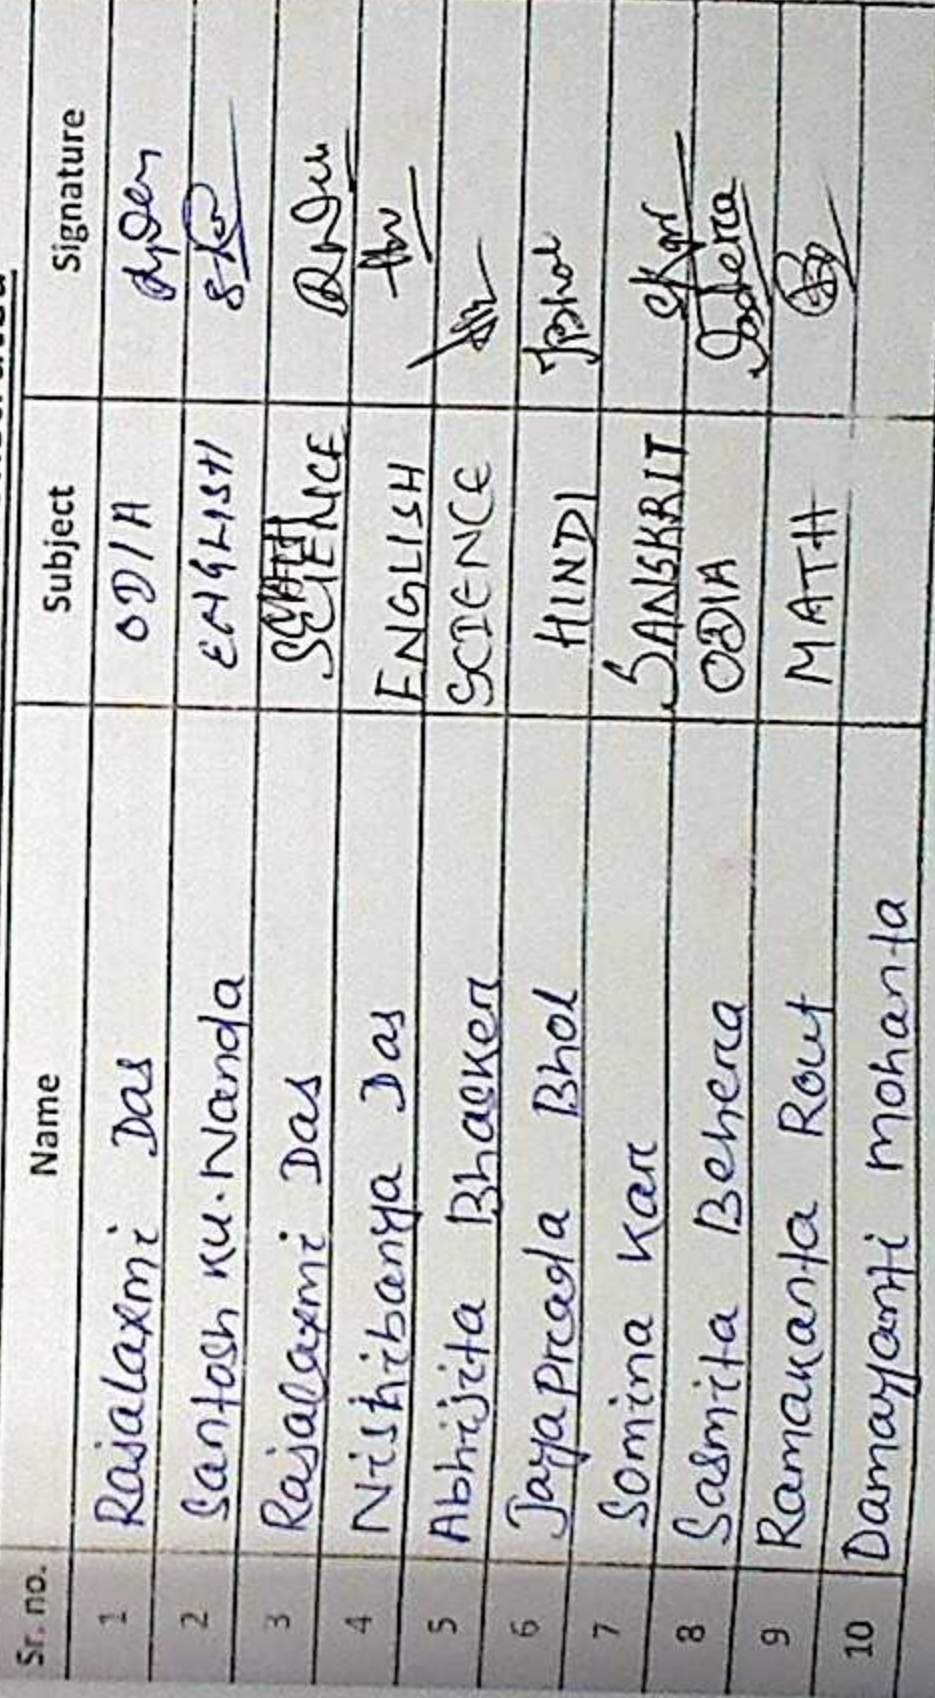 Sr. no. Name Subject Signature
1 Rajalaxmi Das ODIA
2 Santosh Ku. Nanda ENGLISH
3 Rajalaxmi Das SCIENCE
4 Nishibanya Das ENGLISH
5 Abhijita Bhacker SCIENCE
6 Jayaprada Bhol HINDI JPBhol
7 Somina Kar SANSKRIT SKar
8 Sasmita Behera ODIA SBehera
9 Ramakanta Rout MATH
10 Damayanti Mohanta